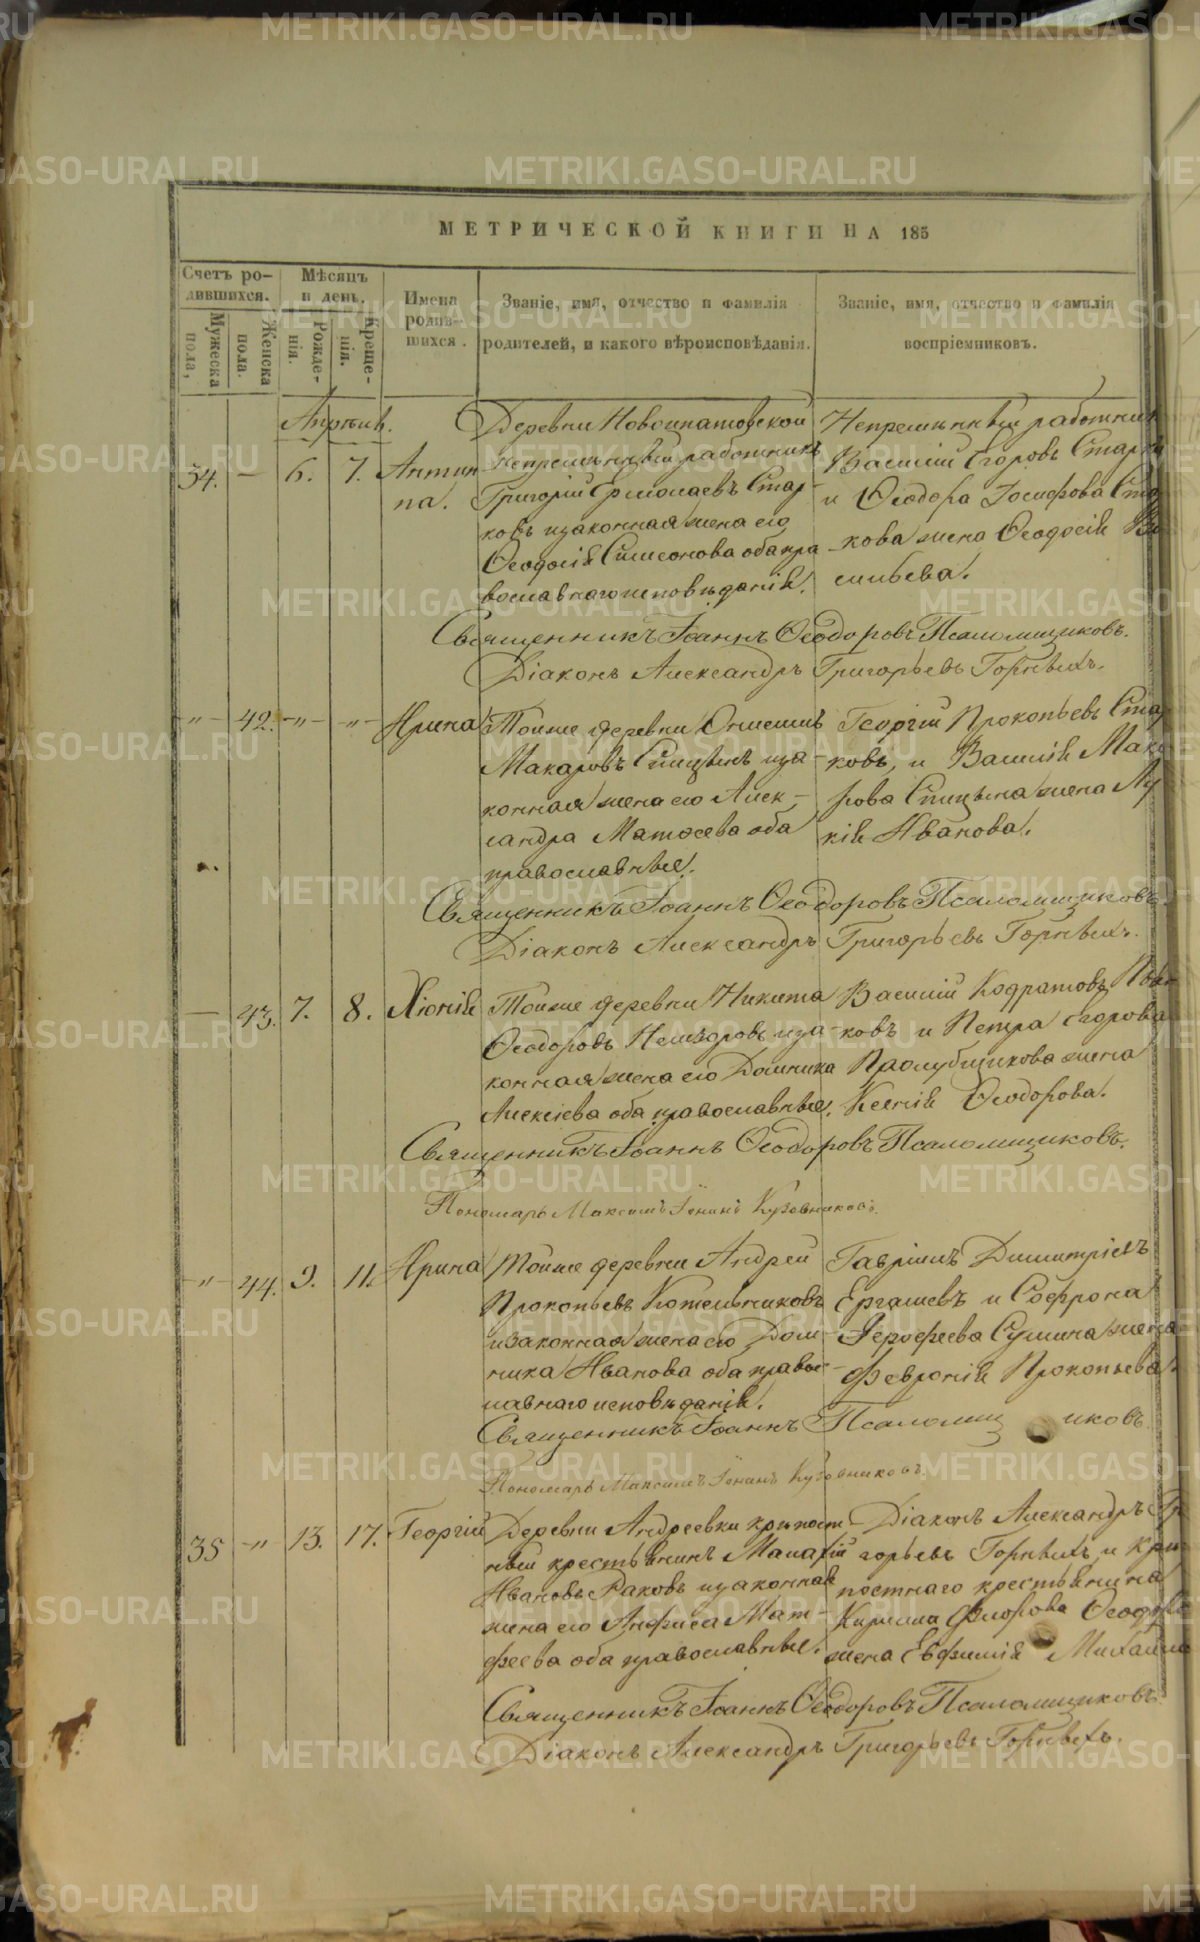 МЕТРИЧЕСКОЙ КНИГИ НА 185
Счетъ ро-
дившихся.
Мужеска
пола,
Женска
пола.
Мѣсяцъ
и день.
Рожде-
нія.
Креще-
нія.
Имена
родив-
шихся.
Званіе, имя, отчество и фамилія
родителей, и какого вѣроисповѣданія.
Званіе, имя, отчество и фамилія
воспріемниковъ.
Апрѣль.
34. — 6. 7. Антип
па.
Деревни Новоипатовской
непремѣнный работникъ
Григорій Ермолаевъ Стар-
ковъ изаконная жена его
Ѳеодосія Симеонова оба пра
вославнаго исповѣданія.
Непремѣнный работник
Василій Егоровъ Старко
и Ѳеодора Іосифова Ста
кова жена Ѳеодосія Ва
сильева.
Священникъ Іоаннъ Ѳеодоровъ Псаломщиковъ.
Діаконъ Александръ Григорьевъ Горныхъ.
—"— 42. —"— —"— Ирина
Тойже деревни Онисимъ
Макаровъ Спицынъ иза-
конная жена его Алек-
сандра Матѳеева оба
православные.
Георгій Прокопьевъ Стар
ковъ, и Василія Мака
рова Спицына жена Лу
кія Иванова.
Священникъ Іоаннъ Ѳеодоровъ Псаломщиковъ.
Діаконъ Александръ Григорьевъ Горныхъ.
— 43. 7. 8. Хіонія
Тойже деревни Никита
Ѳеодоровъ иза-
конная жена его Домника
Алексіева оба православные.
Василій Кодратовъ
ковъ и Петра Егорова
Пролубщикова жена
Ксенія Ѳеодорова.
Священникъ Іоаннъ Ѳеодоровъ Псаломщиковъ.
Пономарь Максимъ Іонинъ Кузовниковъ.
—"— 44. 9. 11. Ирина
Тойже деревни Андрей
Прокопьевъ Котельниковъ
изаконная жена его Дом-
ника Иванова оба правос-
лавнаго исповѣданія.
Гавріилъ Димитріевъ
Ергашевъ и Софрона
Іерофеева Сумина жена
Февронія Прокопьева.
Священникъ Іоаннъ Псаломщ иковъ
Пономарь Максимъ Іонинъ Кузовниковъ.
35 —"— 13. 17. Георгій
Деревни Андреевки крѣпост
ный крестьянинъ Малахій
Ивановъ Раковъ изаконная
жена его Анфиса Мат-
феева оба православные.
Діаконъ Александръ Гри
горьевъ Горныхъ, и крѣ
постнаго крестьянина
Кирилла Флорова Ѳеодор
жена Евфимія Михайло
Священникъ Іоаннъ Ѳеодоровъ Псаломщиковъ.
Діаконъ Александръ Григорьевъ Горныхъ.
METRIKI.GASO-URAL.RU